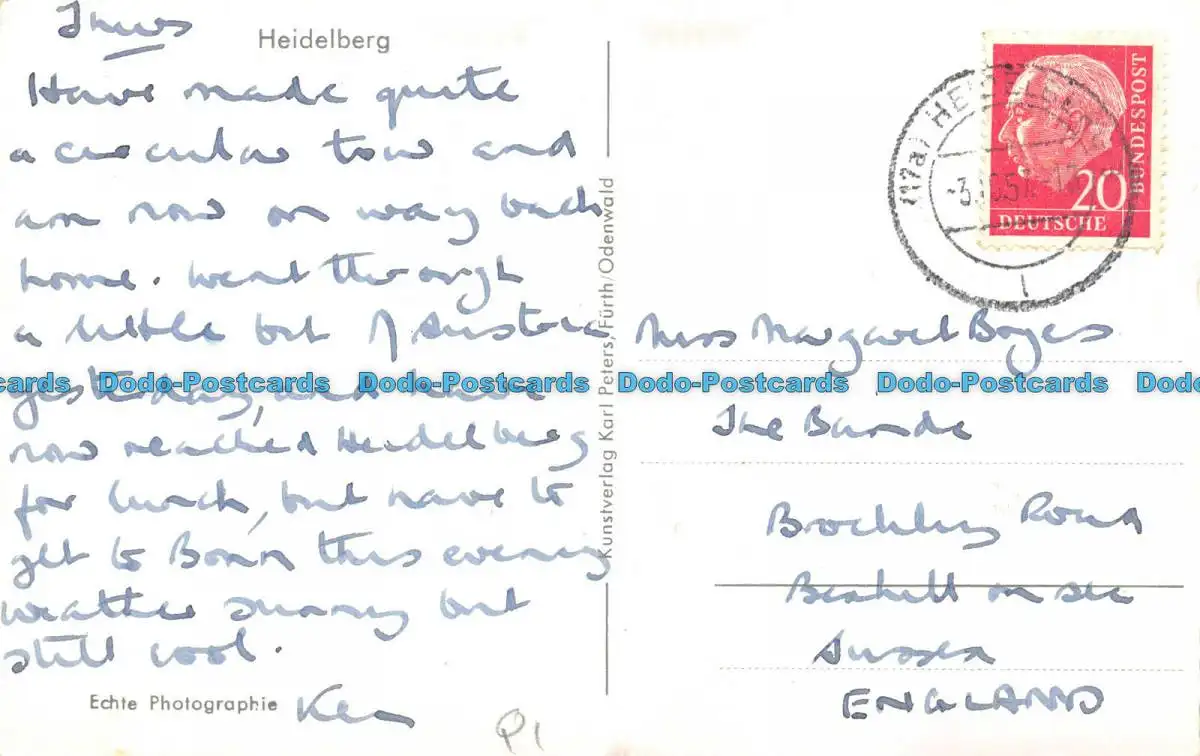 Thurs
Heidelberg
Have made quite
a circular tour and
am now on way back
home. Went through
a little bit of Austria
yesterday, and have
now reached Heidelberg
for lunch, but have to
get to Bonn this evening
weather sunny but
still cool.
Ken
Echte Photographie
P1
Kunstverlag Karl Peters, Fürth/Odenwald
(17a) HEIDELBERG
20
DEUTSCHE
BUNDESPOST
Miss Margaret Boyes
The
Road
Bexhill on sea
Sussex
ENGLAND
Dodo-Postcards Dodo-Postcards Dodo-Postcards Dodo-Postcards